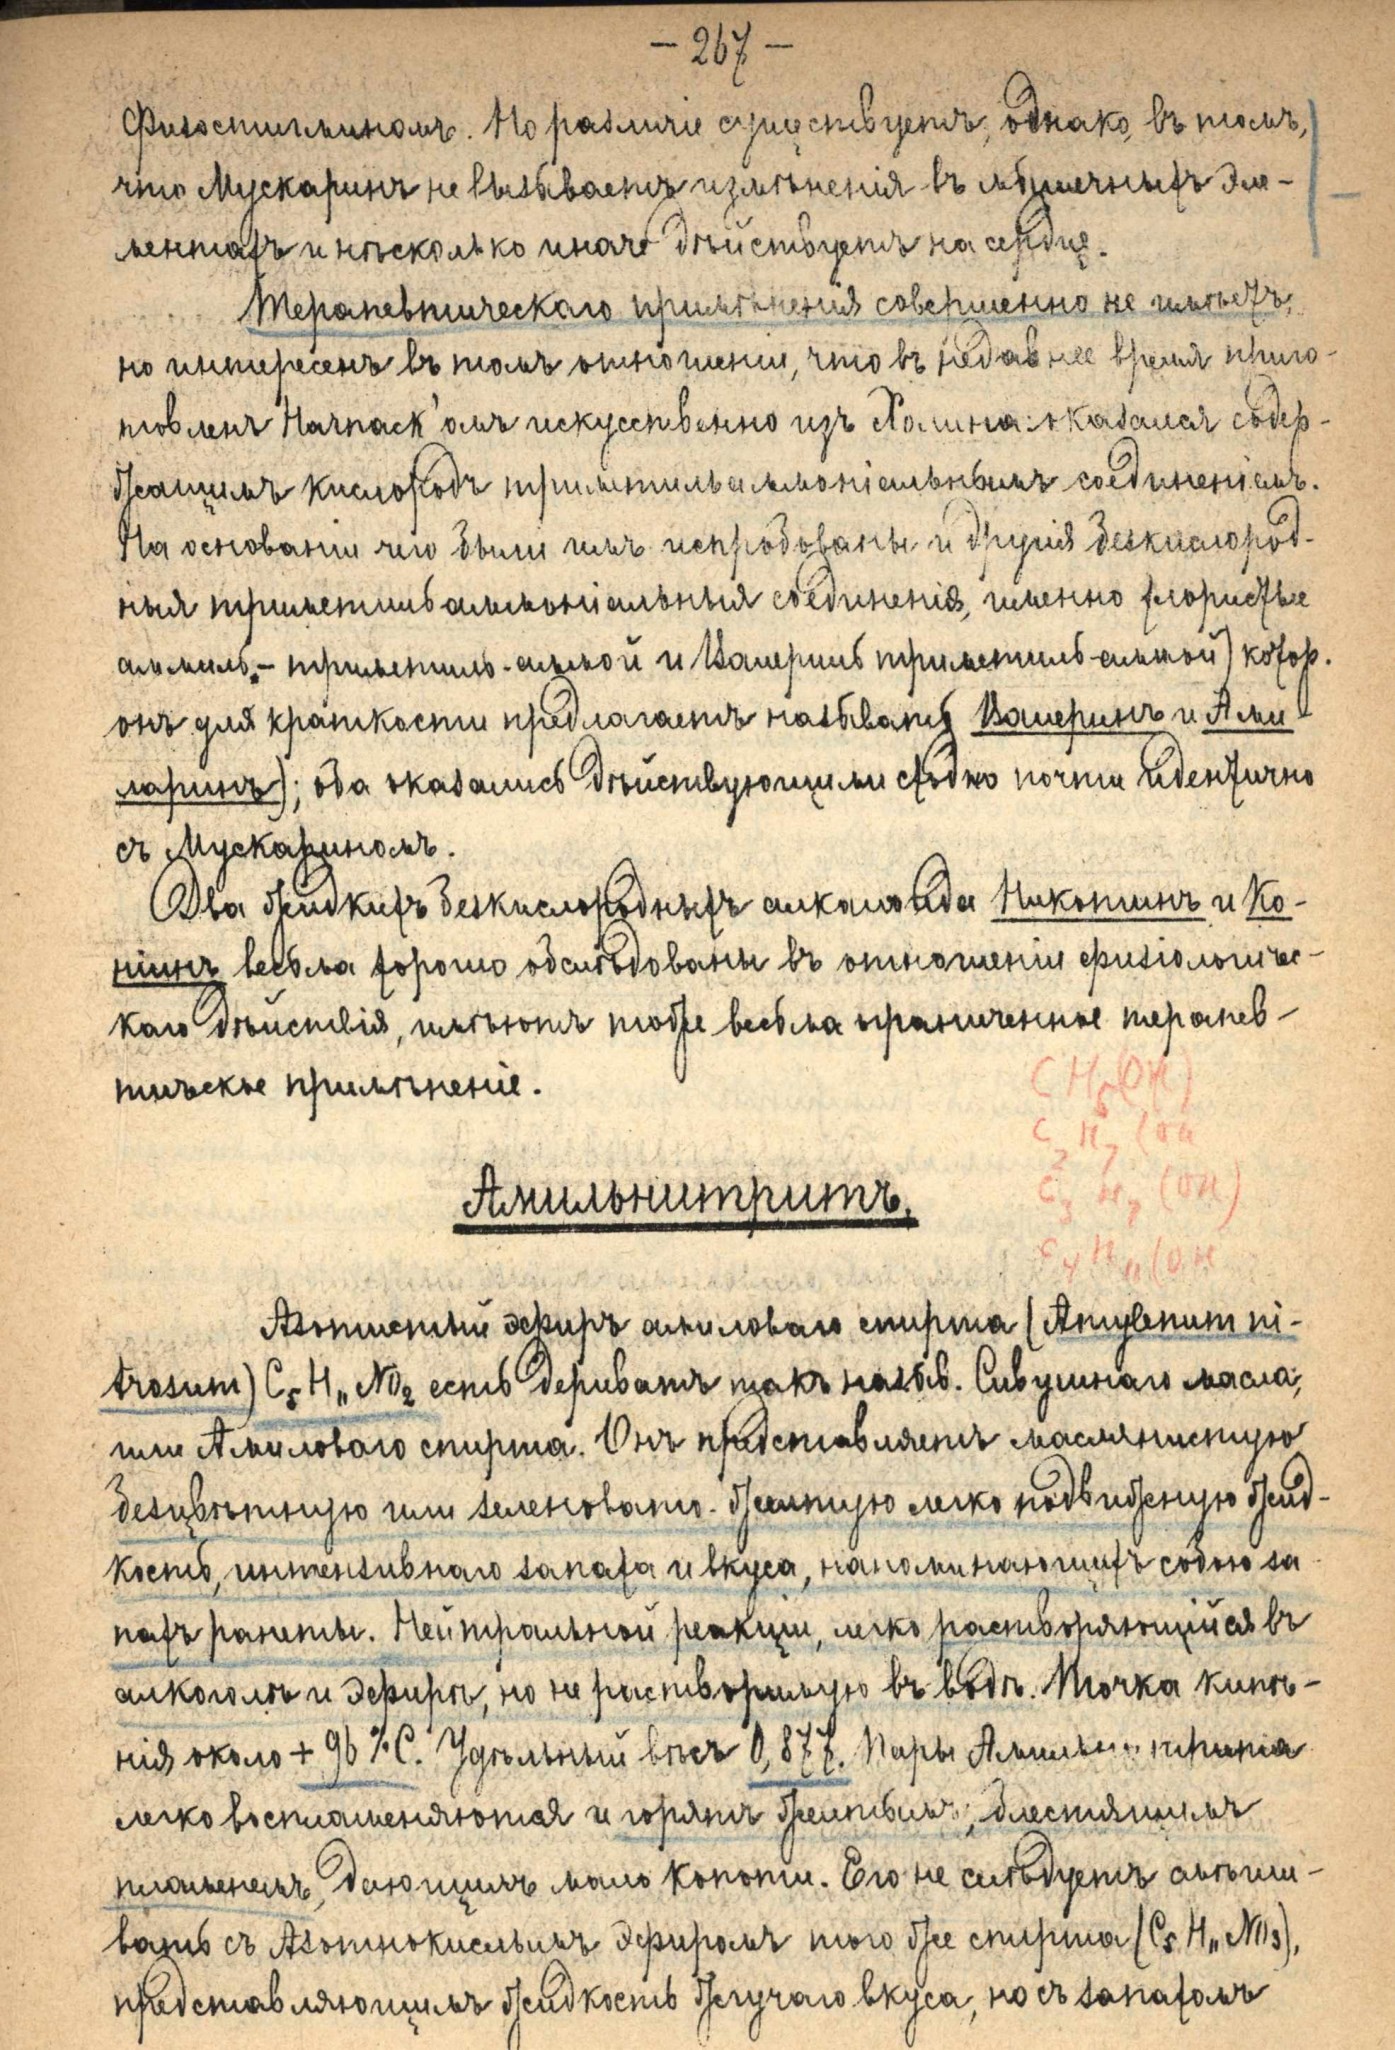 — 267 —
Физостигминомъ. Но различіе существуетъ, однако, въ томъ,
что Мускаринъ не вызываетъ измѣненія въ мышечныхъ эле-
ментахъ и нѣсколько иначе дѣйствуетъ на сердце.
Терапевтическаго примѣненія совершенно не имѣетъ,
но интересенъ въ томъ отношеніи, что въ недавнее время приго-
товленъ Harnack'омъ искусственно изъ Холина: оказался содер-
жащимъ кислородъ триметильаммоніальнымъ соединеніемъ.
На основаніи чего были имъ испробованы и другія безкислород-
ныя триметильаммоніальныя соединенія, именно хлористые
аммиль - триметиль-аммой и Валериль триметиль-аммой) котор.
онъ для краткости предлагаетъ называть Валеринъ и Ами-
ларинъ); оба оказались дѣйствующими сходно почти идентично
съ Мускариномъ.
Два жидкихъ безкислородныхъ алкалоида Никотинъ и Ко-
ніинъ весьма хорошо обслѣдованы въ отношеніи физіологичес-
каго дѣйствія, имѣютъ тоже весьма ограниченное терапев-
тическое примѣненіе.
CH5(OH)
C2H7(OH
C3H7(OH)
C4H11(OH
Амильнитритъ.
Азотистый эфиръ амиловаго спирта (Amylenum ni-
trosum) C5H11NO2 есть дериватъ такъ назыв. Сивушнаго масла,
или Амиловаго спирта. Онъ представляетъ маслянистую
безцвѣтную или зеленовато-желтую легко подвижную жид-
кость, интензивнаго запаха и вкуса, напоминающихъ собою за
пахъ ранеты. Нейтральной реакціи, легко растворяющійся въ
алкоголѣ и эфирѣ, но не растворимую въ водѣ. Точка кипѣ-
нія около + 96 %C. Удѣльный вѣсъ 0,877. Пары Амильнитрита
легко воспламеняются и горятъ желтымъ, блестящимъ
пламенемъ, дающимъ мало копоти. Его не слѣдуетъ смѣши-
вать съ Азотнокислымъ эфиромъ того же спирта (C5H11NO3),
представляющимъ жидкость жгучаго вкуса, но съ запахомъ